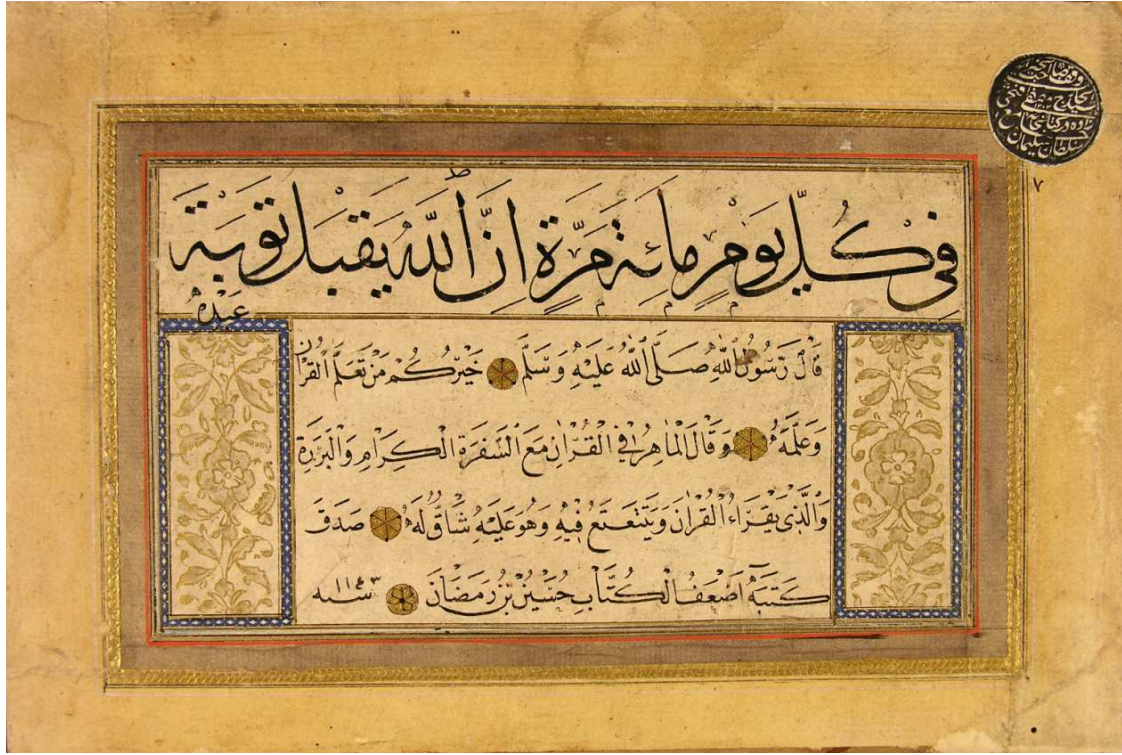 فِى كُلِّ يَوْمٍ مِائَةَ مَرَّةٍ اِنَّ اللّٰهَ يَقْبَلُ تَوْبَةَ
عَبْدِهِ
قَالَ رَسُولُ اللّٰهِ صَلَّى اللّٰهُ عَلَيْهِ وَسَلَّمَ خَيْرُكُمْ مَنْ تَعَلَّمَ الْقُرْاٰنَ
وَعَلَّمَهُ وَقَالَ الْمَاهِرُ فِى الْقُرْاٰنِ مَعَ السَّفَرَةِ الْكِرَامِ وَالْبَرَرَةِ
وَالَّذِى يَقْرَاءُ الْقُرْاٰنَ وَيَتَتَعْتَعُ فِيهِ وَهُوَ عَلَيْهِ شَاقٌّ لَهُ صَدَقَ
كَتَبَهُ اَضْعَفُ الْكُتَّابِ حُسَيْنُ بْنُ رَمَضَانَ سنه ١١٤٣
٧
سلطان سليمان